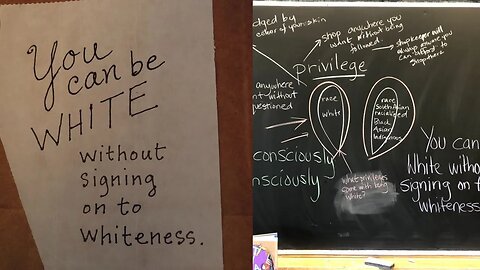 You
can be
WHITE
without
signing
on to
whiteness.
dged by
color of your skin
shop anywhere you
want without being
followed
shopkeeper will
always assume you
can afford to
shop there
Privilege
anywhere
nt without
questioned
race
white
race
South Asian
racialized
Black
Asian
Indigenous
consciously
nsciously
What privileges
come with being
white?
You can
White witho
signing on t
whiteness